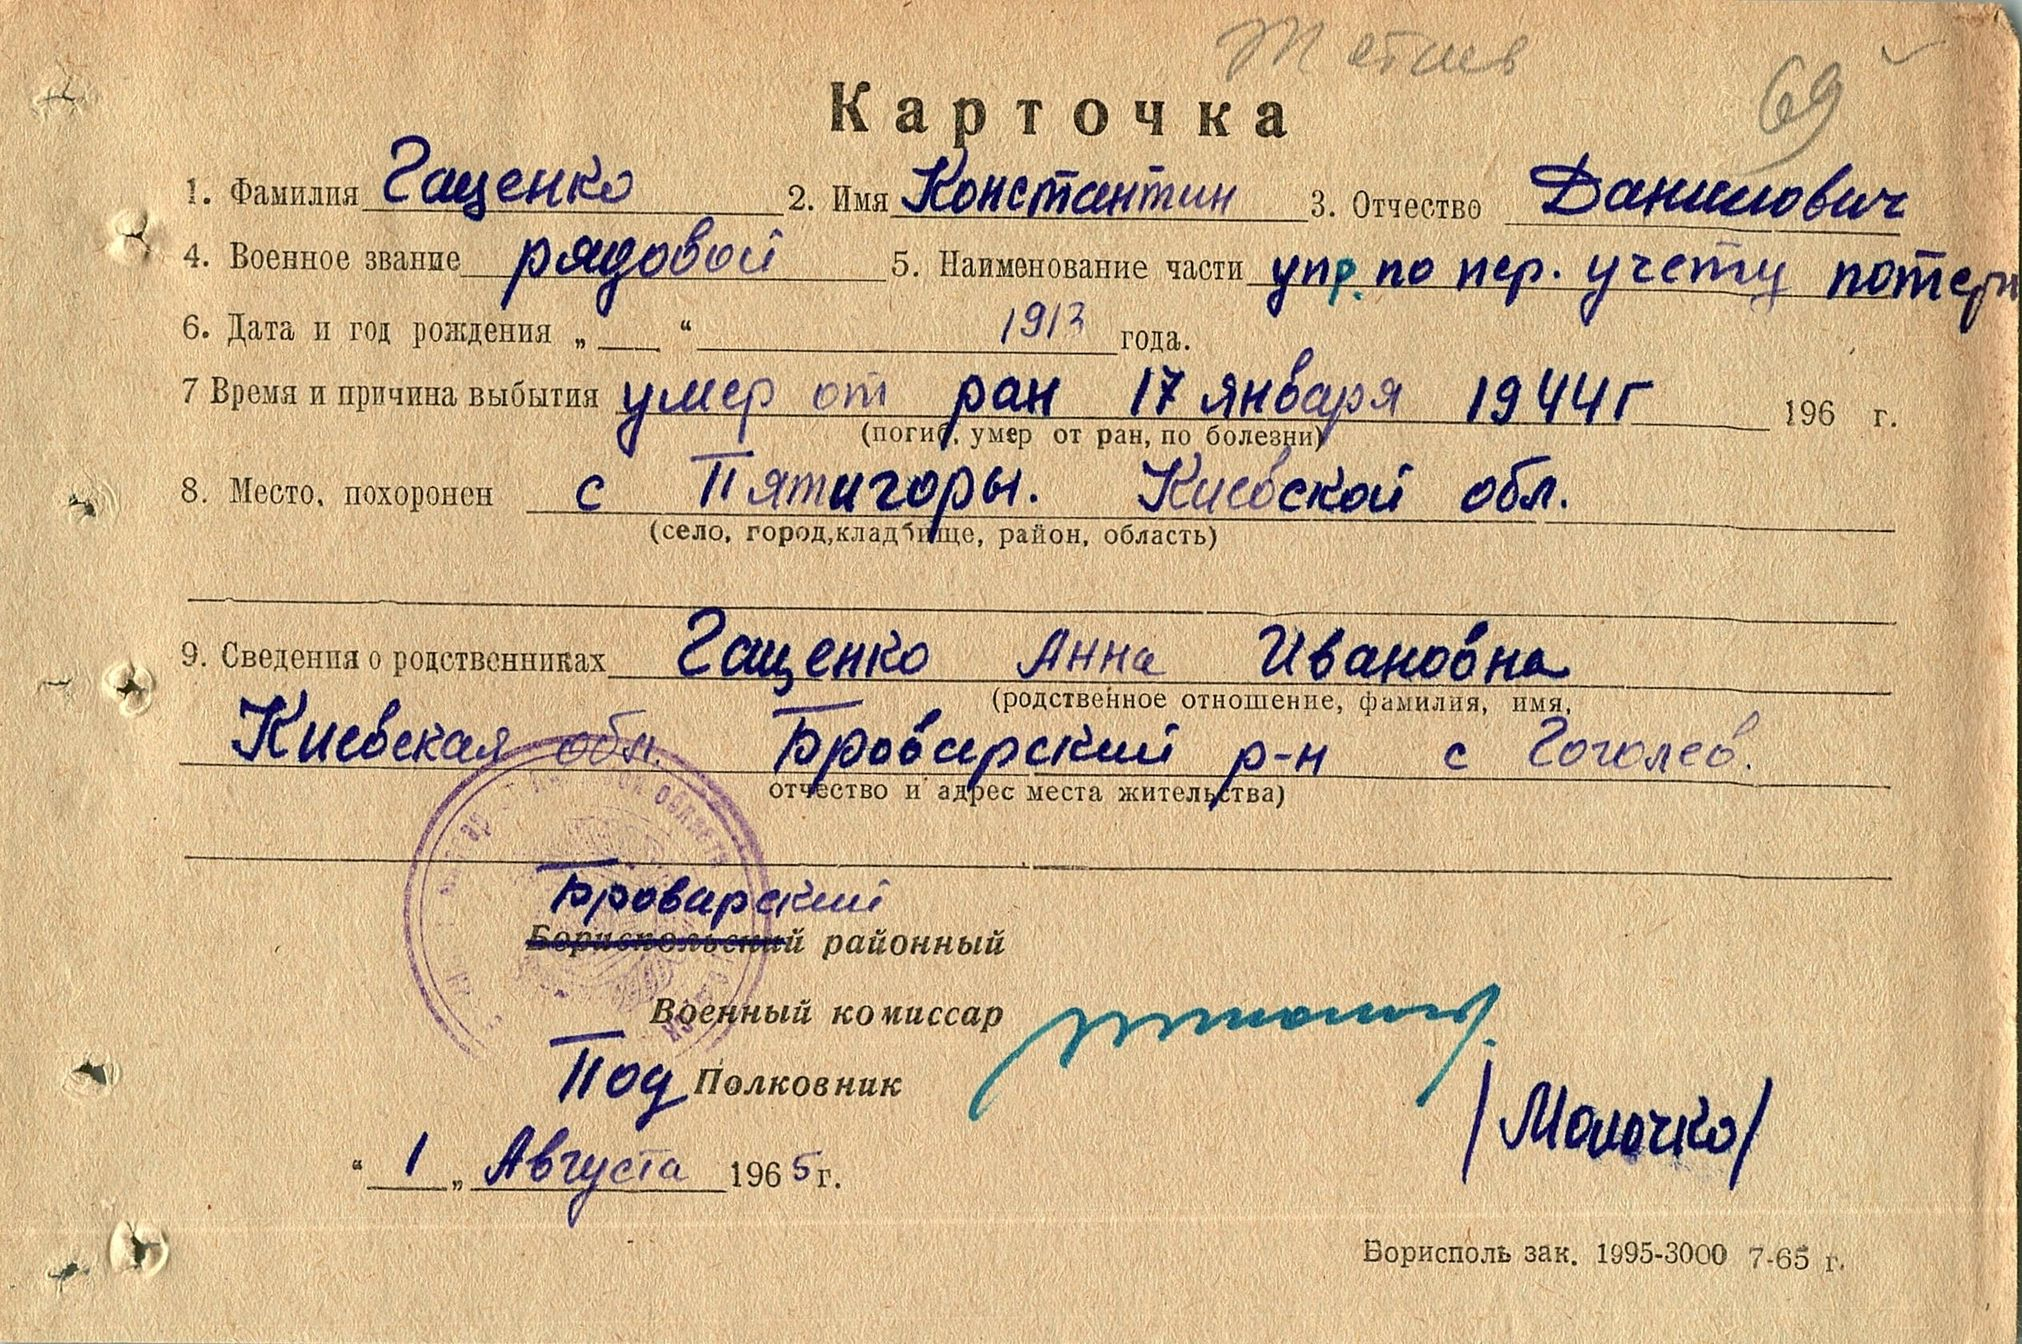 Тетиев
69
Карточка
1. Фамилия Гащенко 2. Имя Константин 3. Отчество Данилович
4. Военное звание рядовой 5. Наименование части упр. по пер. учету потерь
6. Дата и год рождения „ “ 1913 года.
7 Время и причина выбытия умер от ран 17 января 1944г 196 г.
(погиб, умер от ран, по болезни)
8. Место, похоронен с Пятигоры. Киевской обл.
(село, город, кладбище, район, область)
9. Сведения о родственниках Гащенко Анна Ивановна
(родственное отношение, фамилия, имя,
Киевская обл. Броварский р-н с Гоголев.
отчество и адрес места жительства)
Броварский
Бориспольский районный
Военный комиссар
Под Полковник
/Молочко/
“ 1 „ Августа 1965 г.
Борисполь зак. 1995-3000 7-65 г.